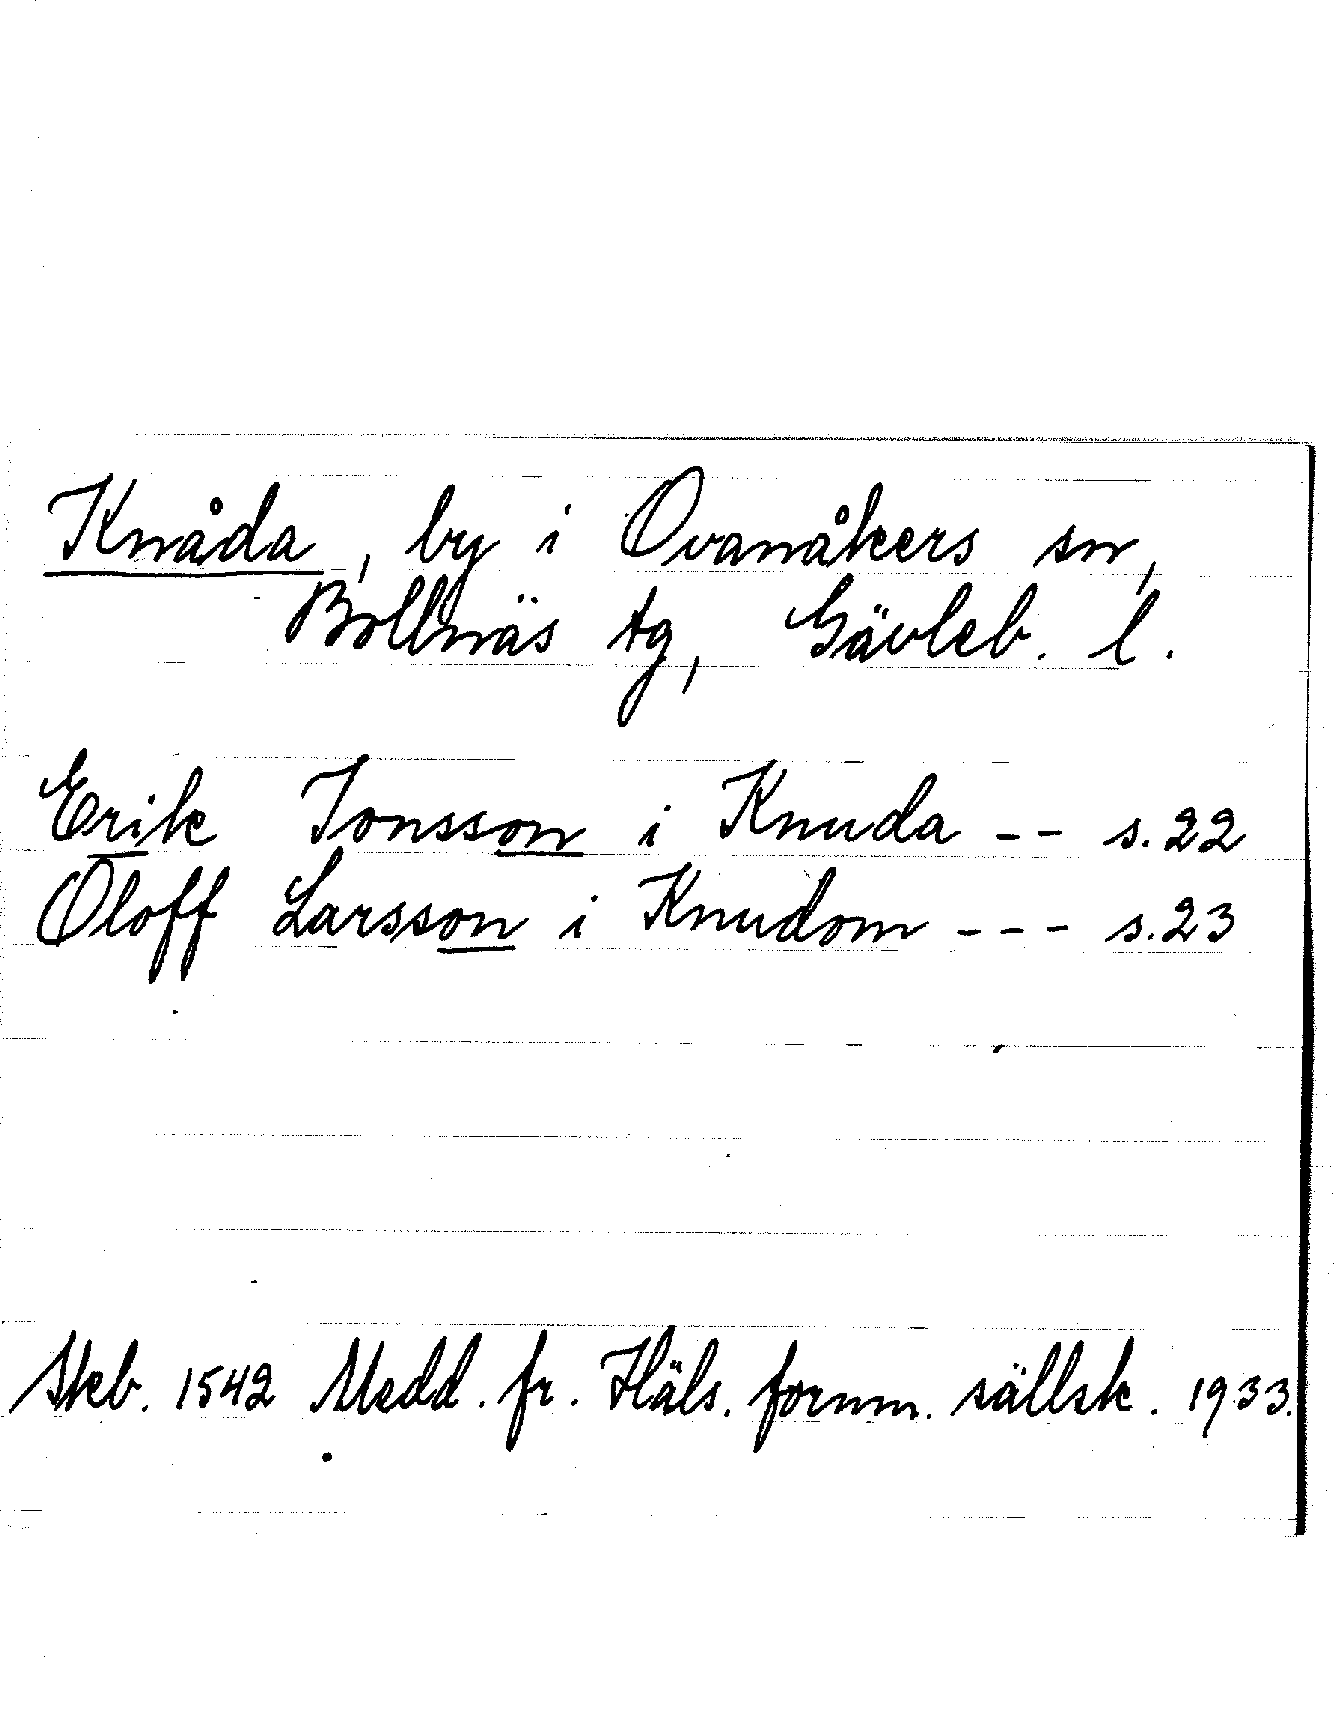 Knåda, by i Ovanåkers sn,
Bollnäs tg, Gävleb. l.
Erik Jonsson i Knuda -- s. 22
Oloff Larsson i Knudom --- s. 23
Skeb. 1542 Medd. fr. Häls. fornm. sällsk. 1933.